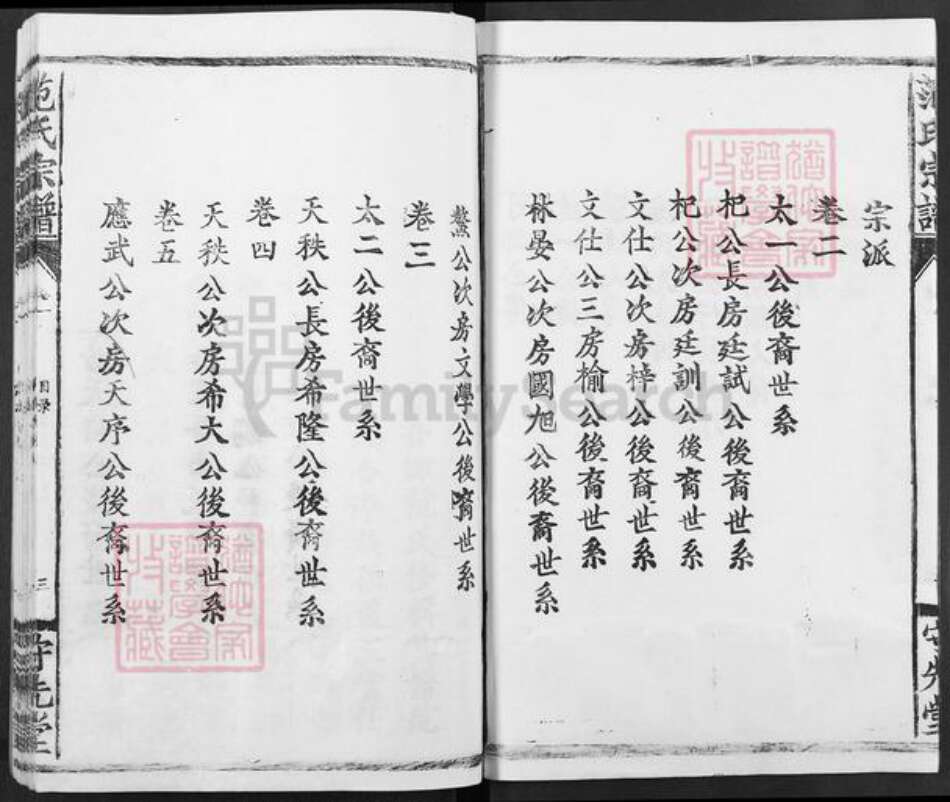 宗派
卷二
太一公後裔世系
杞公長房廷試公後裔世系
杞公次房廷訓公後裔世系
文仕公次房梓公後裔世系
文仕公三房榆公後裔世系
林晏公次房國旭公後裔世系
鰲公次房文學公後裔世系
卷三
太二公後裔世系
天秩公長房希隆公後裔世系
卷四
天秩公次房希大公後裔世系
卷五
應武公次房天序公後裔世系
范氏宗譜
目錄
三
守先堂
范氏宗譜
守先堂
FamilySearch